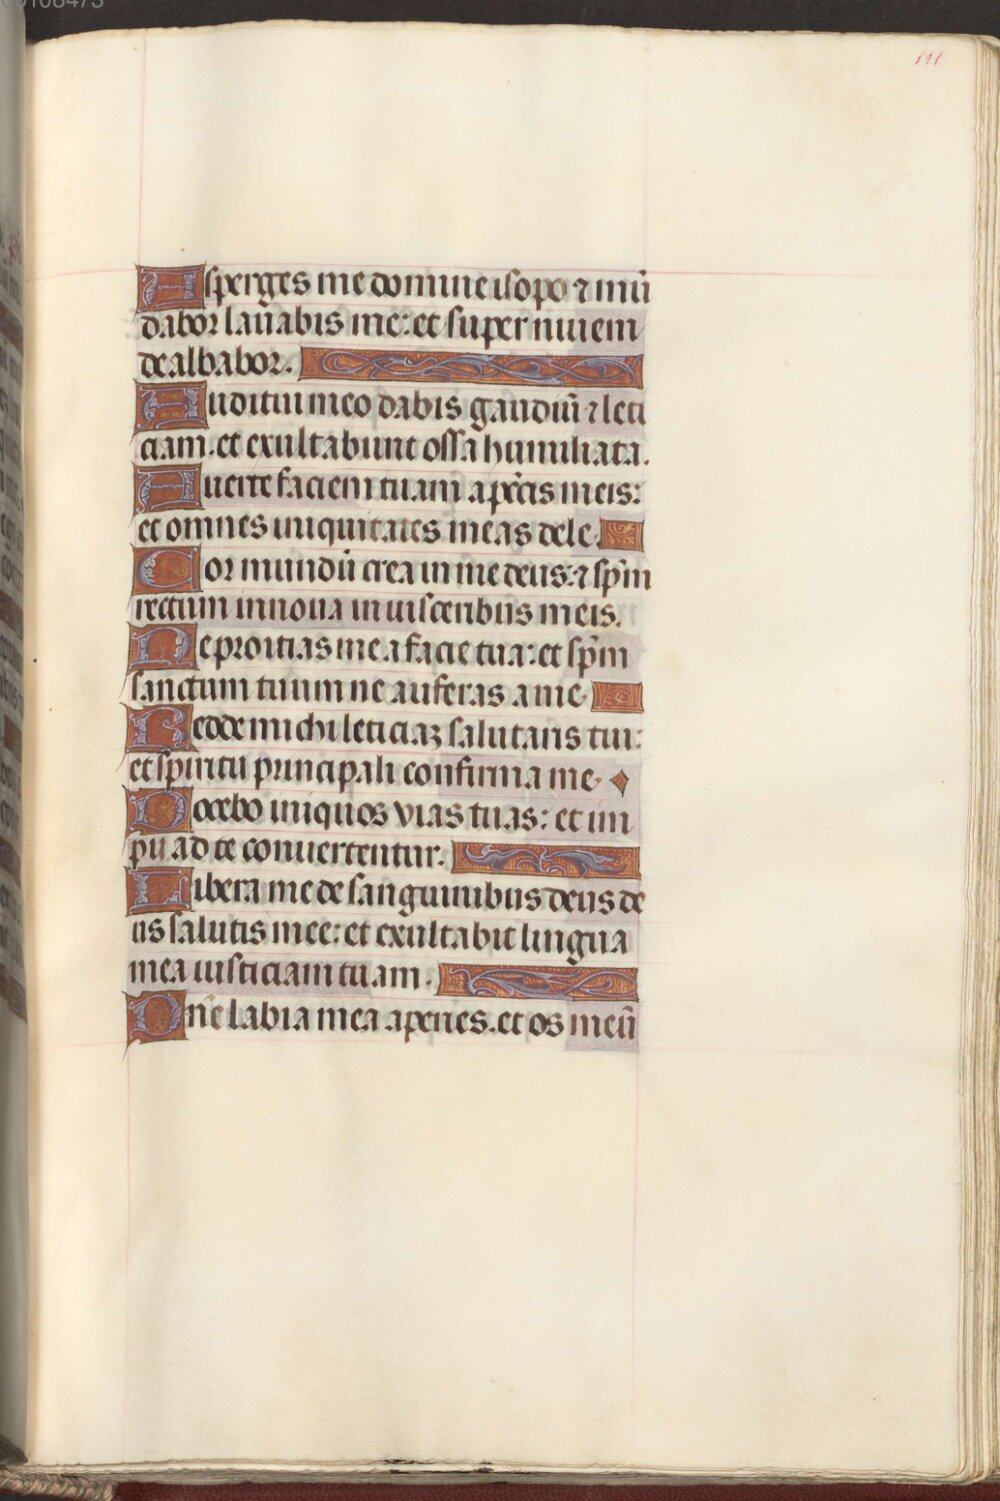 111
Asperges me domine isopo ⁊ mū
dabor lauabis me: et super niuiem
dealbabor.
Auditui meo dabis gaudiū ⁊ leti
ciam. et exultabunt ossa humiliata.
Auerte faciem tuam a pctis meis:
et omnes iniquitates meas dele.
Cor mundū crea in me deus: ⁊ spm̄
rectum innoua in uisceribus meis.
Ne proitias me a facie tua: et spm̄
sanctum tuum ne auferas a me
Redde michi leticiaz salutaris tui:
et spiritu principali confirma me
Docebo iniquos vias tuas: et im
pii ad te conuertentur.
Libera me de sanguinibus deus de
us salutis mee: et exultabit lingua
mea iusticiam tuam.
Dn̄e labia mea aperies. et os meū